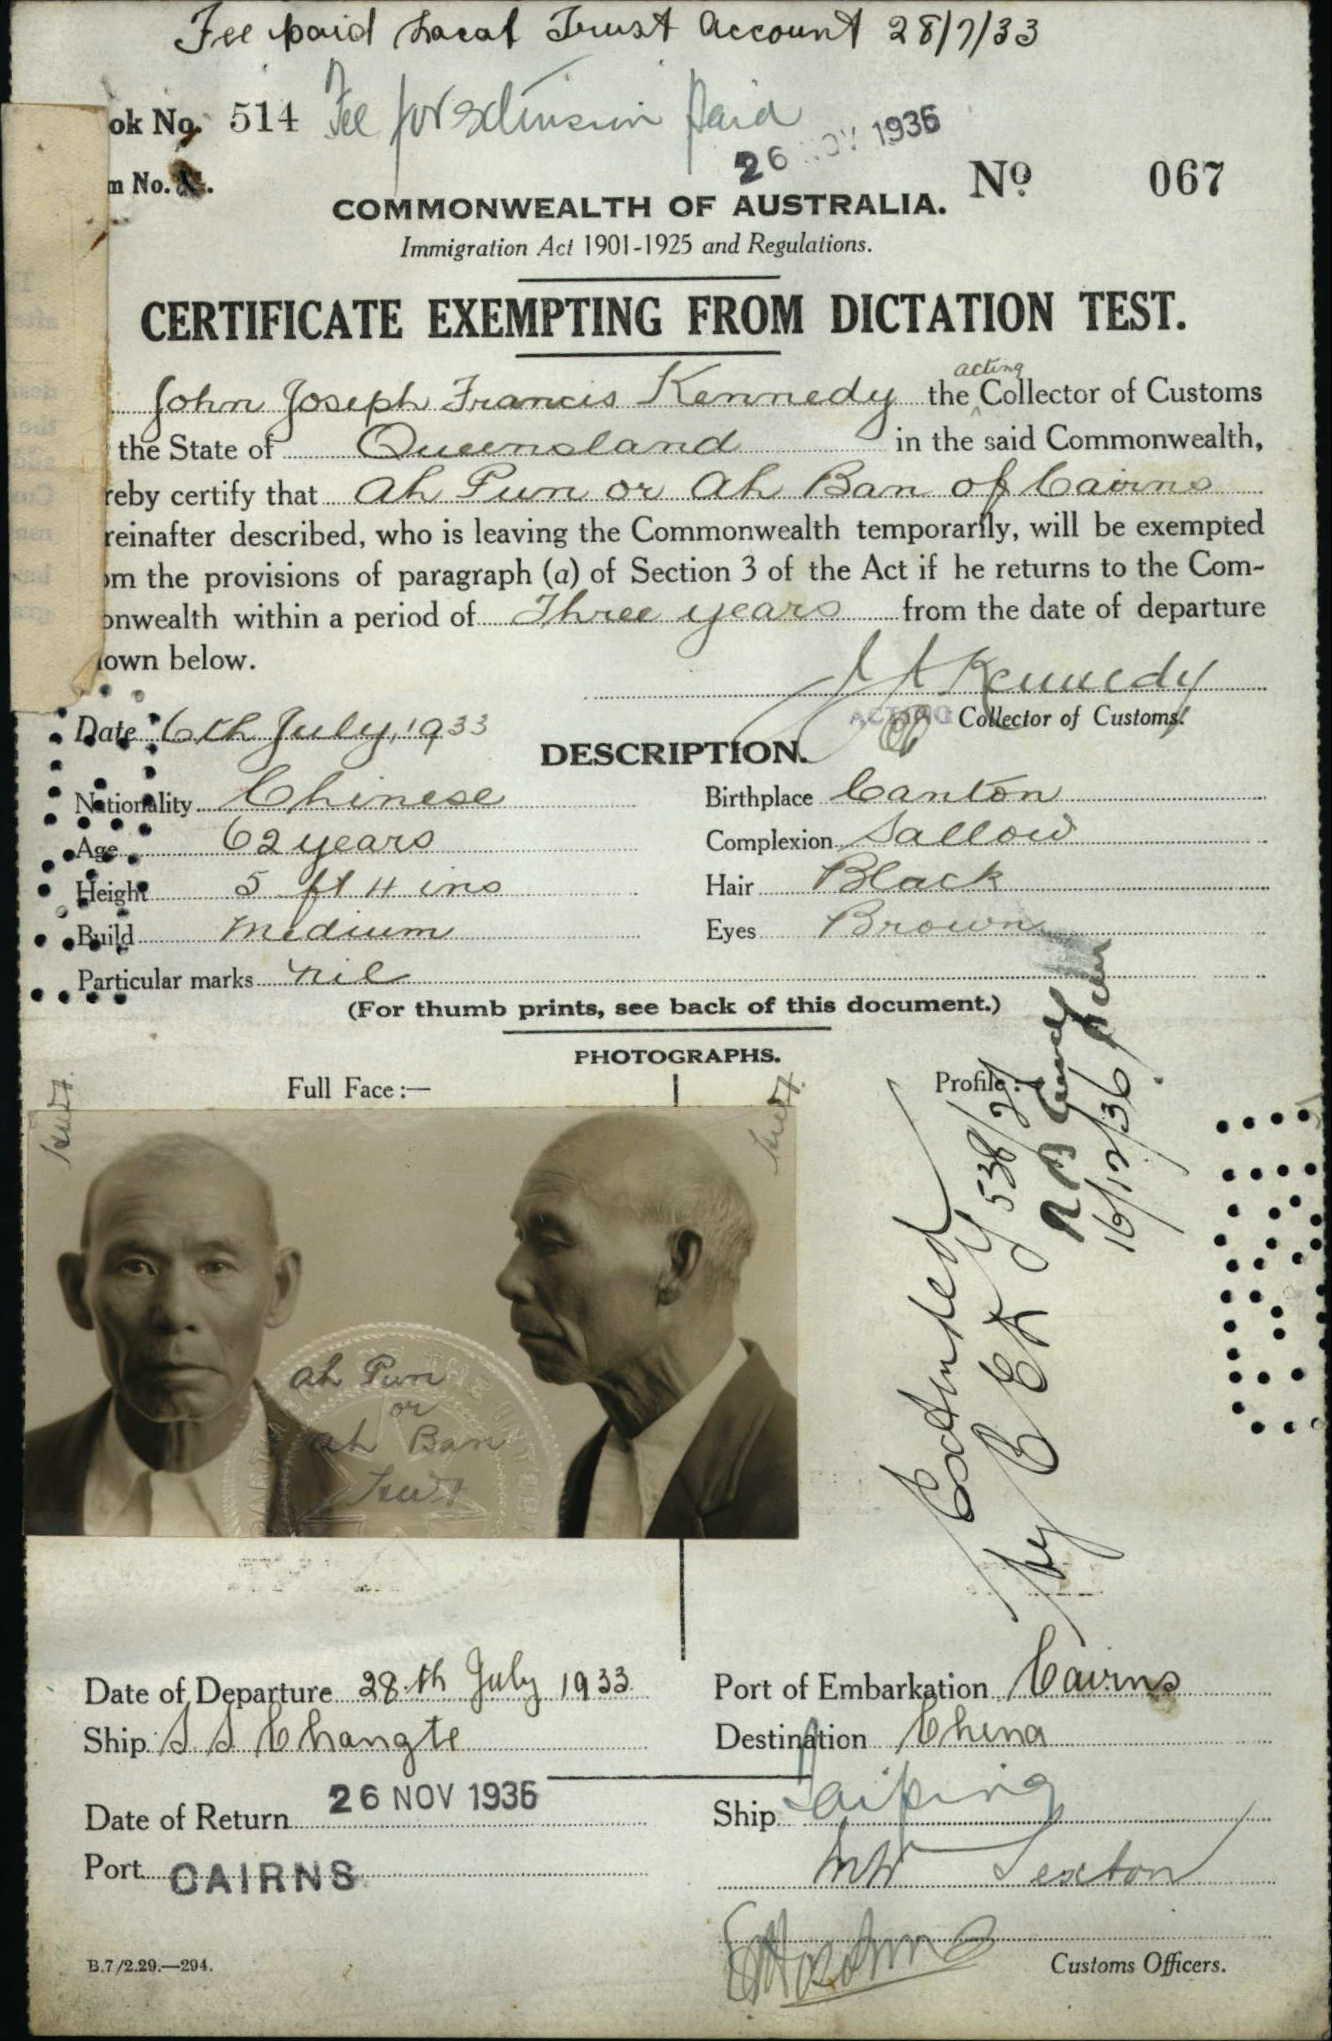 Fee paid Local Trust Account 28/7/33
ok No. 514 Fee for extension paid
26 NOV 1936
m No.
No 067
COMMONWEALTH OF AUSTRALIA.
Immigration Act 1901-1925 and Regulations.
CERTIFICATE EXEMPTING FROM DICTATION TEST.
John Joseph Francis Kennedy the acting Collector of Customs
the State of Queensland in the said Commonwealth,
reby certify that Ah Pun or Ah Ban of Cairns
reinafter described, who is leaving the Commonwealth temporarily, will be exempted
om the provisions of paragraph (a) of Section 3 of the Act if he returns to the Com-
onwealth within a period of Three years from the date of departure
own below.
J J Kennedy
Date 6th July, 1933
ACTING Collector of Customs.
DESCRIPTION.
Nationality Chinese
Birthplace Canton
Age 62 years
Complexion Sallow
Height 5 ft 4 ins
Hair Black
Build Medium
Eyes Brown
Particular marks nil
(For thumb prints, see back of this document.)
PHOTOGRAPHS.
Full Face:—
Profile:—
Ah Pun
or
Ah Ban
Extended
by C E
538/21
16/12/36
Date of Departure 28th July 1933
Port of Embarkation Cairns
Ship S S Changte
Destination China
Date of Return 26 NOV 1936
Ship Taiping
Port CAIRNS
Sexton
B.7/2.29.—294.
Customs Officers.